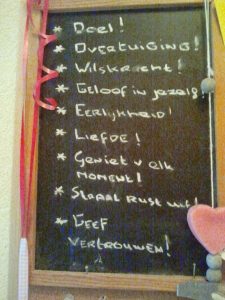 * Doel!
* OVERTUIGING!
* Wilskracht!
* Geloof in jezelf!
* EERLIJKHEID!
* LIEFDE!
* Geniet v elk
MOMENT!
* STRAAL RUST uit!
* GEEF
VERTROUWEN!